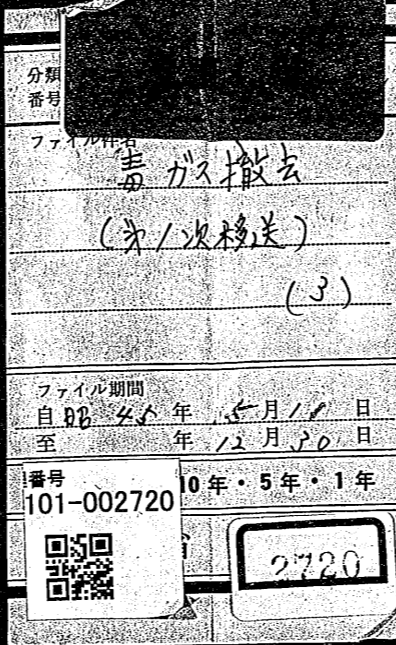 分類
番号
ファイル件名
毒ガス撤去
(第1次移送)
(3)
ファイル期間
自 昭 45 年 5 月 18 日
至 年 12 月 30 日
番号
101-002720
10年・5年・1年
2720